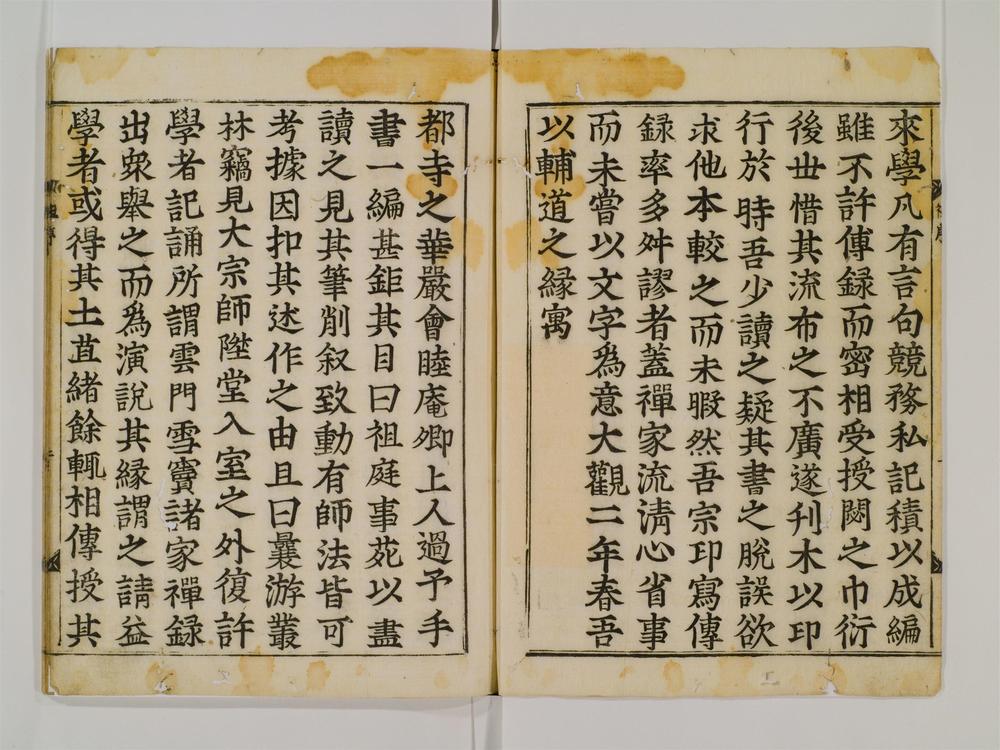 來學凡有言句競務私記積以成編
雖不許傳録而密相受授閟之巾衍
後世惜其流布之不廣遂刋木以印
行於時吾少讀之疑其書之脫誤欲
求他本較之而未暇然吾宗印寫傳
録率多舛謬者蓋禪家流淸心省事
而未嘗以文字爲意大觀二年春吾
以輔道之縁寓
都寺之華嚴會睦庵卿上人過予手
書一編甚鉅其目曰祖庭事苑以盡
讀之見其筆削叙致動有師法皆可
考據因扣其述作之由且曰曩游叢
林竊見大宗師陞堂入室之外復許
學者記誦所謂雲門雪竇諸家禪録
出衆舉之而爲演說其縁謂之請益
學者或得其土苴緒餘輒相傳授其